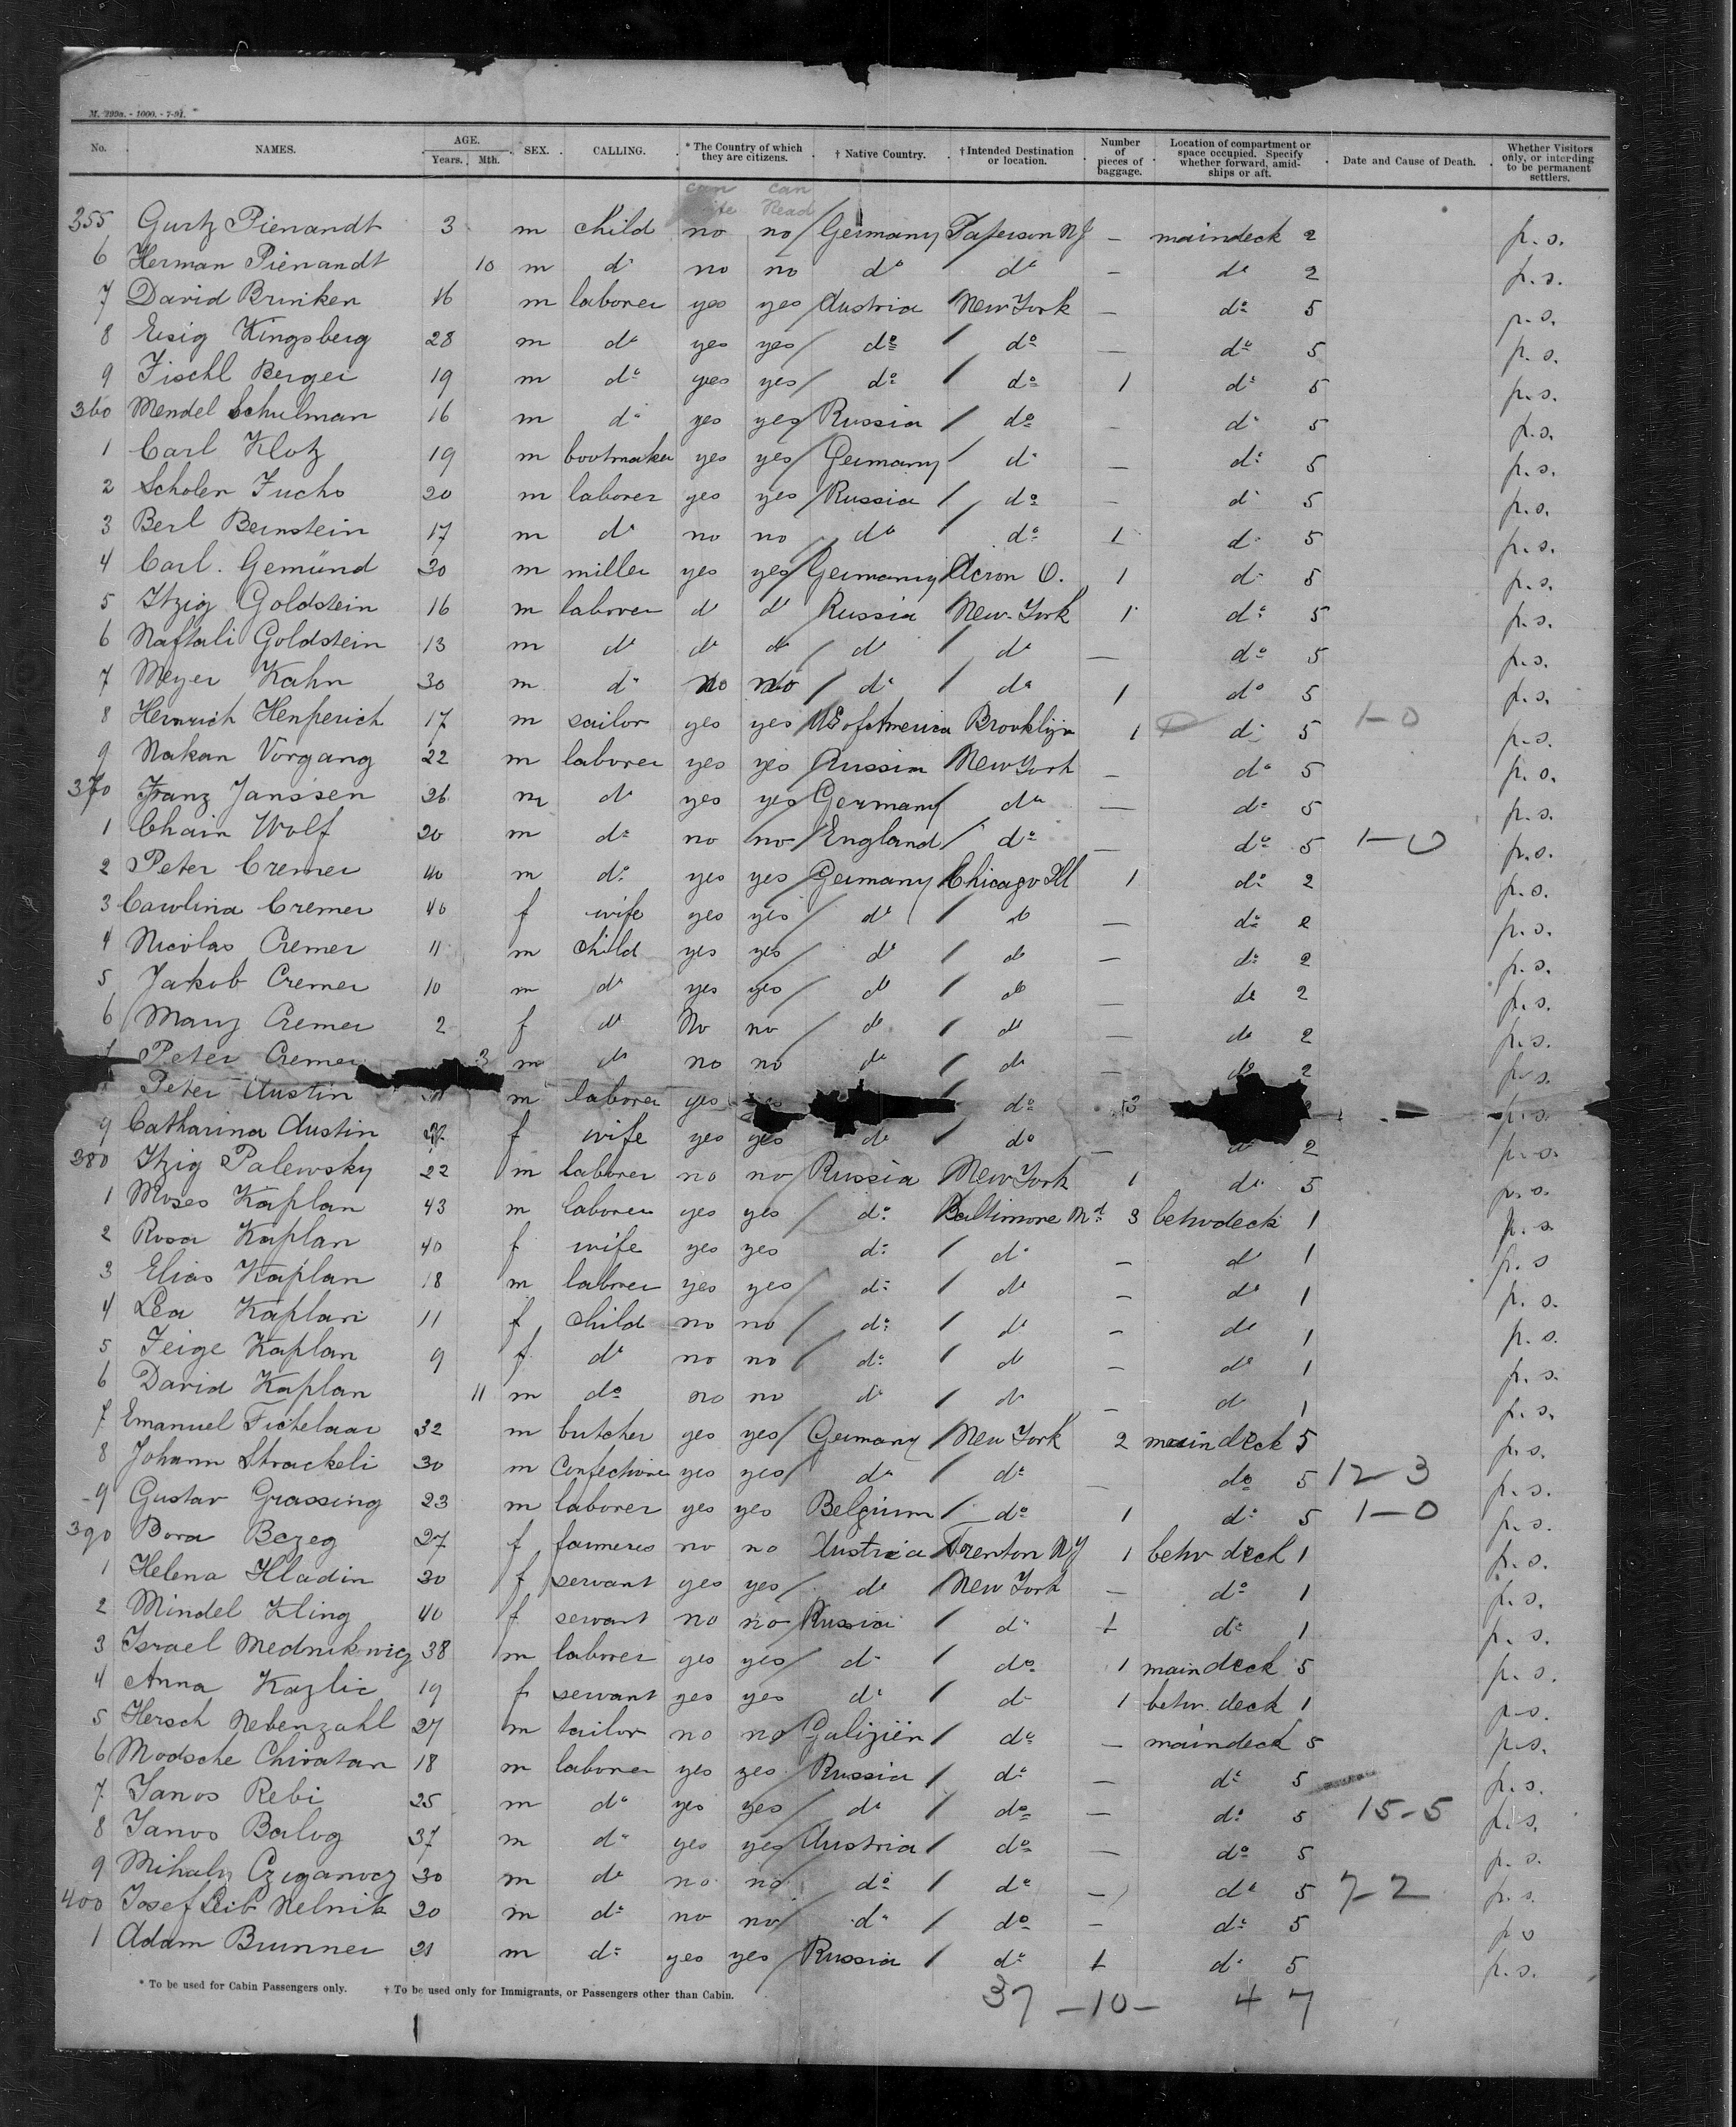 M. 299a. - 1000. - 7-91.
No. NAMES. AGE. Years. Mth. SEX. CALLING. * The Country of which they are citizens. † Native Country. † Intended Destination or location. Number of pieces of baggage. Location of compartment or space occupied. Specify whether forward, amidships or aft. Date and Cause of Death. Whether Visitors only, or interding to be permanent settlers.
can can
Read
355 Gurtz Pienandt 3 m child no no / Germany Paterson NJ — maindeck 2 p.s.
6 Herman Pienandt 10 m do no no do do — do 2 p.s.
7 David Brinken 16 m laborer yes yes / Austria New York — do 5 p.s.
8 Eisig Kingsberg 28 m do yes yes / do / do — do 5 p.s.
9 Fischl Berger 19 m do yes yes / do / do 1 do 5 p.s.
360 Mendel Schulman 16 m do yes yes / Russia / do — do 5 p.s.
1 Carl Klotz 19 m bootmaker yes yes / Germany / do — do 5 p.s.
2 Scholen Fuchs 20 m laborer yes yes / Russia / do — do 5 p.s.
3 Berl Bernstein 17 m do no no do / do 1 do 5 p.s.
4 Carl. Gemünd 30 m miller yes yes / Germany Acron O. 1 do 5 p.s.
5 Itzig Goldstein 16 m laborer do do Russia New-York 1 do 5 p.s.
6 Naftali Goldstein 13 m do do do / do / do — do 5 p.s.
7 Meyer Kahn 30 m do no no / do / do 1 do 5 p.s.
8 Heinrich Henperich 17 m sailor yes yes / US of America Brooklijn 1 do 5 1-0 p.s.
9 Nakan Vorgang 22 m laborer yes yes / Russia New York — do 5 p.s.
370 Franz Janssen 26 m do yes yes / Germany / do — do 5 p.s.
1 Chain Wolf 20 m do no no / England / do — do 5 1-0 p.s.
2 Peter Cremer 40 m do yes yes / Germany / Chicago Ill 1 do 2 p.s.
3 Carolina Cremer 40 f wife yes yes / do / do — do 2 p.s.
4 Nicolas Cremer 11 m child yes yes / do / do — do 2 p.s.
5 Jakob Cremer 10 m do yes yes / do / do — do 2 p.s.
6 Mary Cremer 2 f do No no / do / do — do 2 p.s.
7 Peter Cremer 3 m do no no do / do — do 2 p.s.
Peter Austin m laborer yes / do 3 p.s.
9 Catharina Austin f wife yes yes do / do — do 2 p.s.
380 Itzig Palewsky 22 m laborer no no / Russia New York 1 do 5 p.s.
1 Moses Kaplan 43 m laborer yes yes / do Baltimore Md 3 betwdeck 1 p.s.
2 Rosa Kaplan 40 f wife yes yes do / do — do 1 p.s
3 Elias Kaplan 18 m laborer yes yes / do / do — do 1 p.s.
4 Lea Kaplan 11 f child no no / do / do — do 1 p.s.
5 Feige Kaplan 9 f do no no / do / do — do 1 p.s.
6 David Kaplan 11 m do no no do / do — do 1 p.s.
7 Emanuel Fichelaar 32 m butcher yes yes / Germany / New York 2 maindeck 5 p.s.
8 Johann Strackeli 30 m Confectioner yes yes / do / do — do 5 12-3 p.s.
9 Gustav Grassing 23 m laborer yes yes Belgium / do 1 do 5 1-0 p.s.
390 Dora Bezeg 27 f farmeres no no Austria Trenton NJ 1 betw deck 1 p.s.
1 Helena Hladin 30 f servant yes yes / do / New York — do 1 p.s.
2 Mindel Kling 40 f servant no no / Russia / do 1 do 1 p.s.
3 Israel Mednikwicz 38 m laborer yes yes / do / do 1 maindeck 5 p.s.
4 Anna Kazlic 19 f servant yes yes do / do 1 betw. deck 1 p.s.
5 Hersch Nebenzahl 27 m tailor no no / Galizien / do — maindeck 5 p.s.
6 Modsche Chivatan 18 m laborer yes yes Russia / do — do 5 p.s.
7 Janos Rebi 25 m do yes yes / do / do — do 5 15-5 p.s.
8 Janos Balog 37 m do yes yes / Austria / do — do 5 p.s.
9 Mihaly Cziganocz 30 m do no no do / do — do 5 7-2 p.s.
400 Josef Leib Melnik 20 m do no no / do / do — do 5 p s
1 Adam Brunner 21 m do yes yes / Russia / do 1 do 5 p.s.
* To be used for Cabin Passengers only. † To be used only for Immigrants, or Passengers other than Cabin.
37 — 10 — 4 7